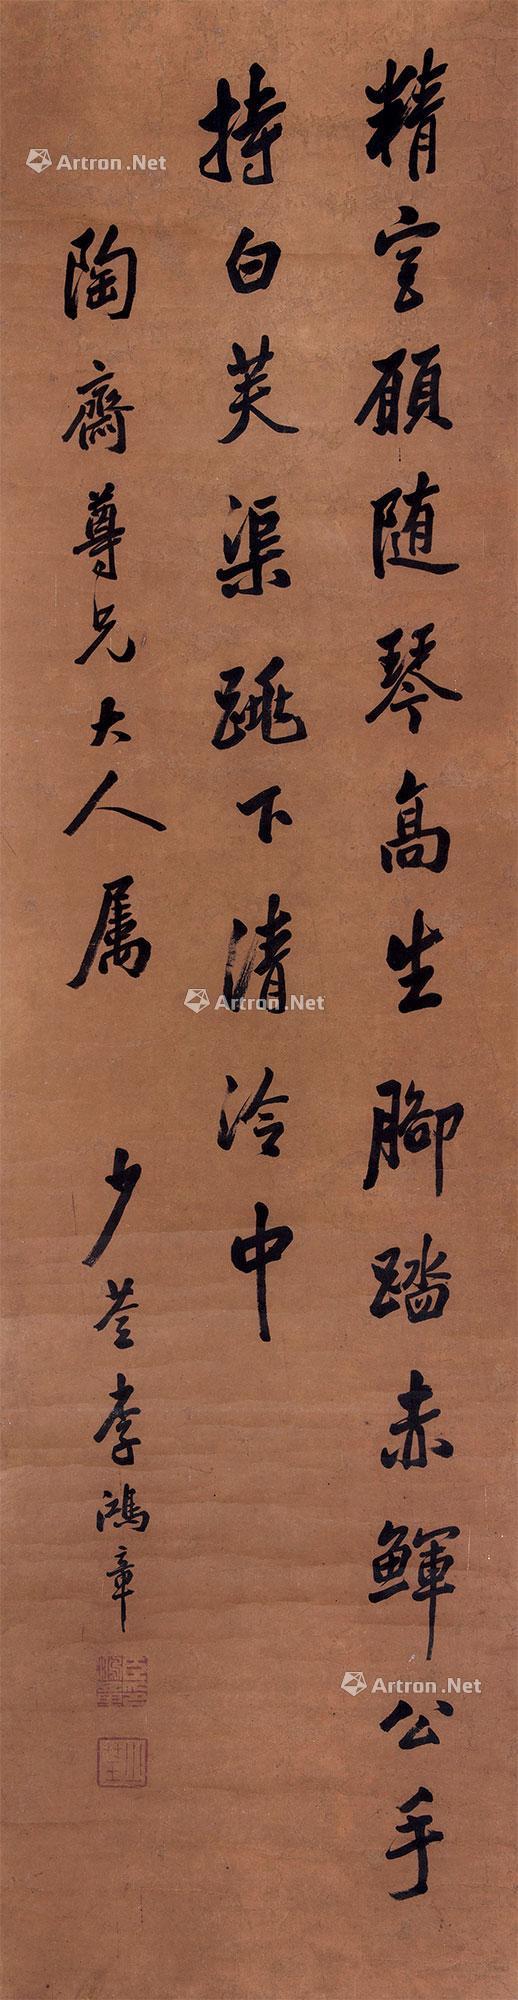 精官願随琴髙生腳踏赤鯶公手
持白芙渠跳下清泠中
陶齋尊兄大人属
少荃李鴻章
Artron.Net
Artron.Net
Artron.Net